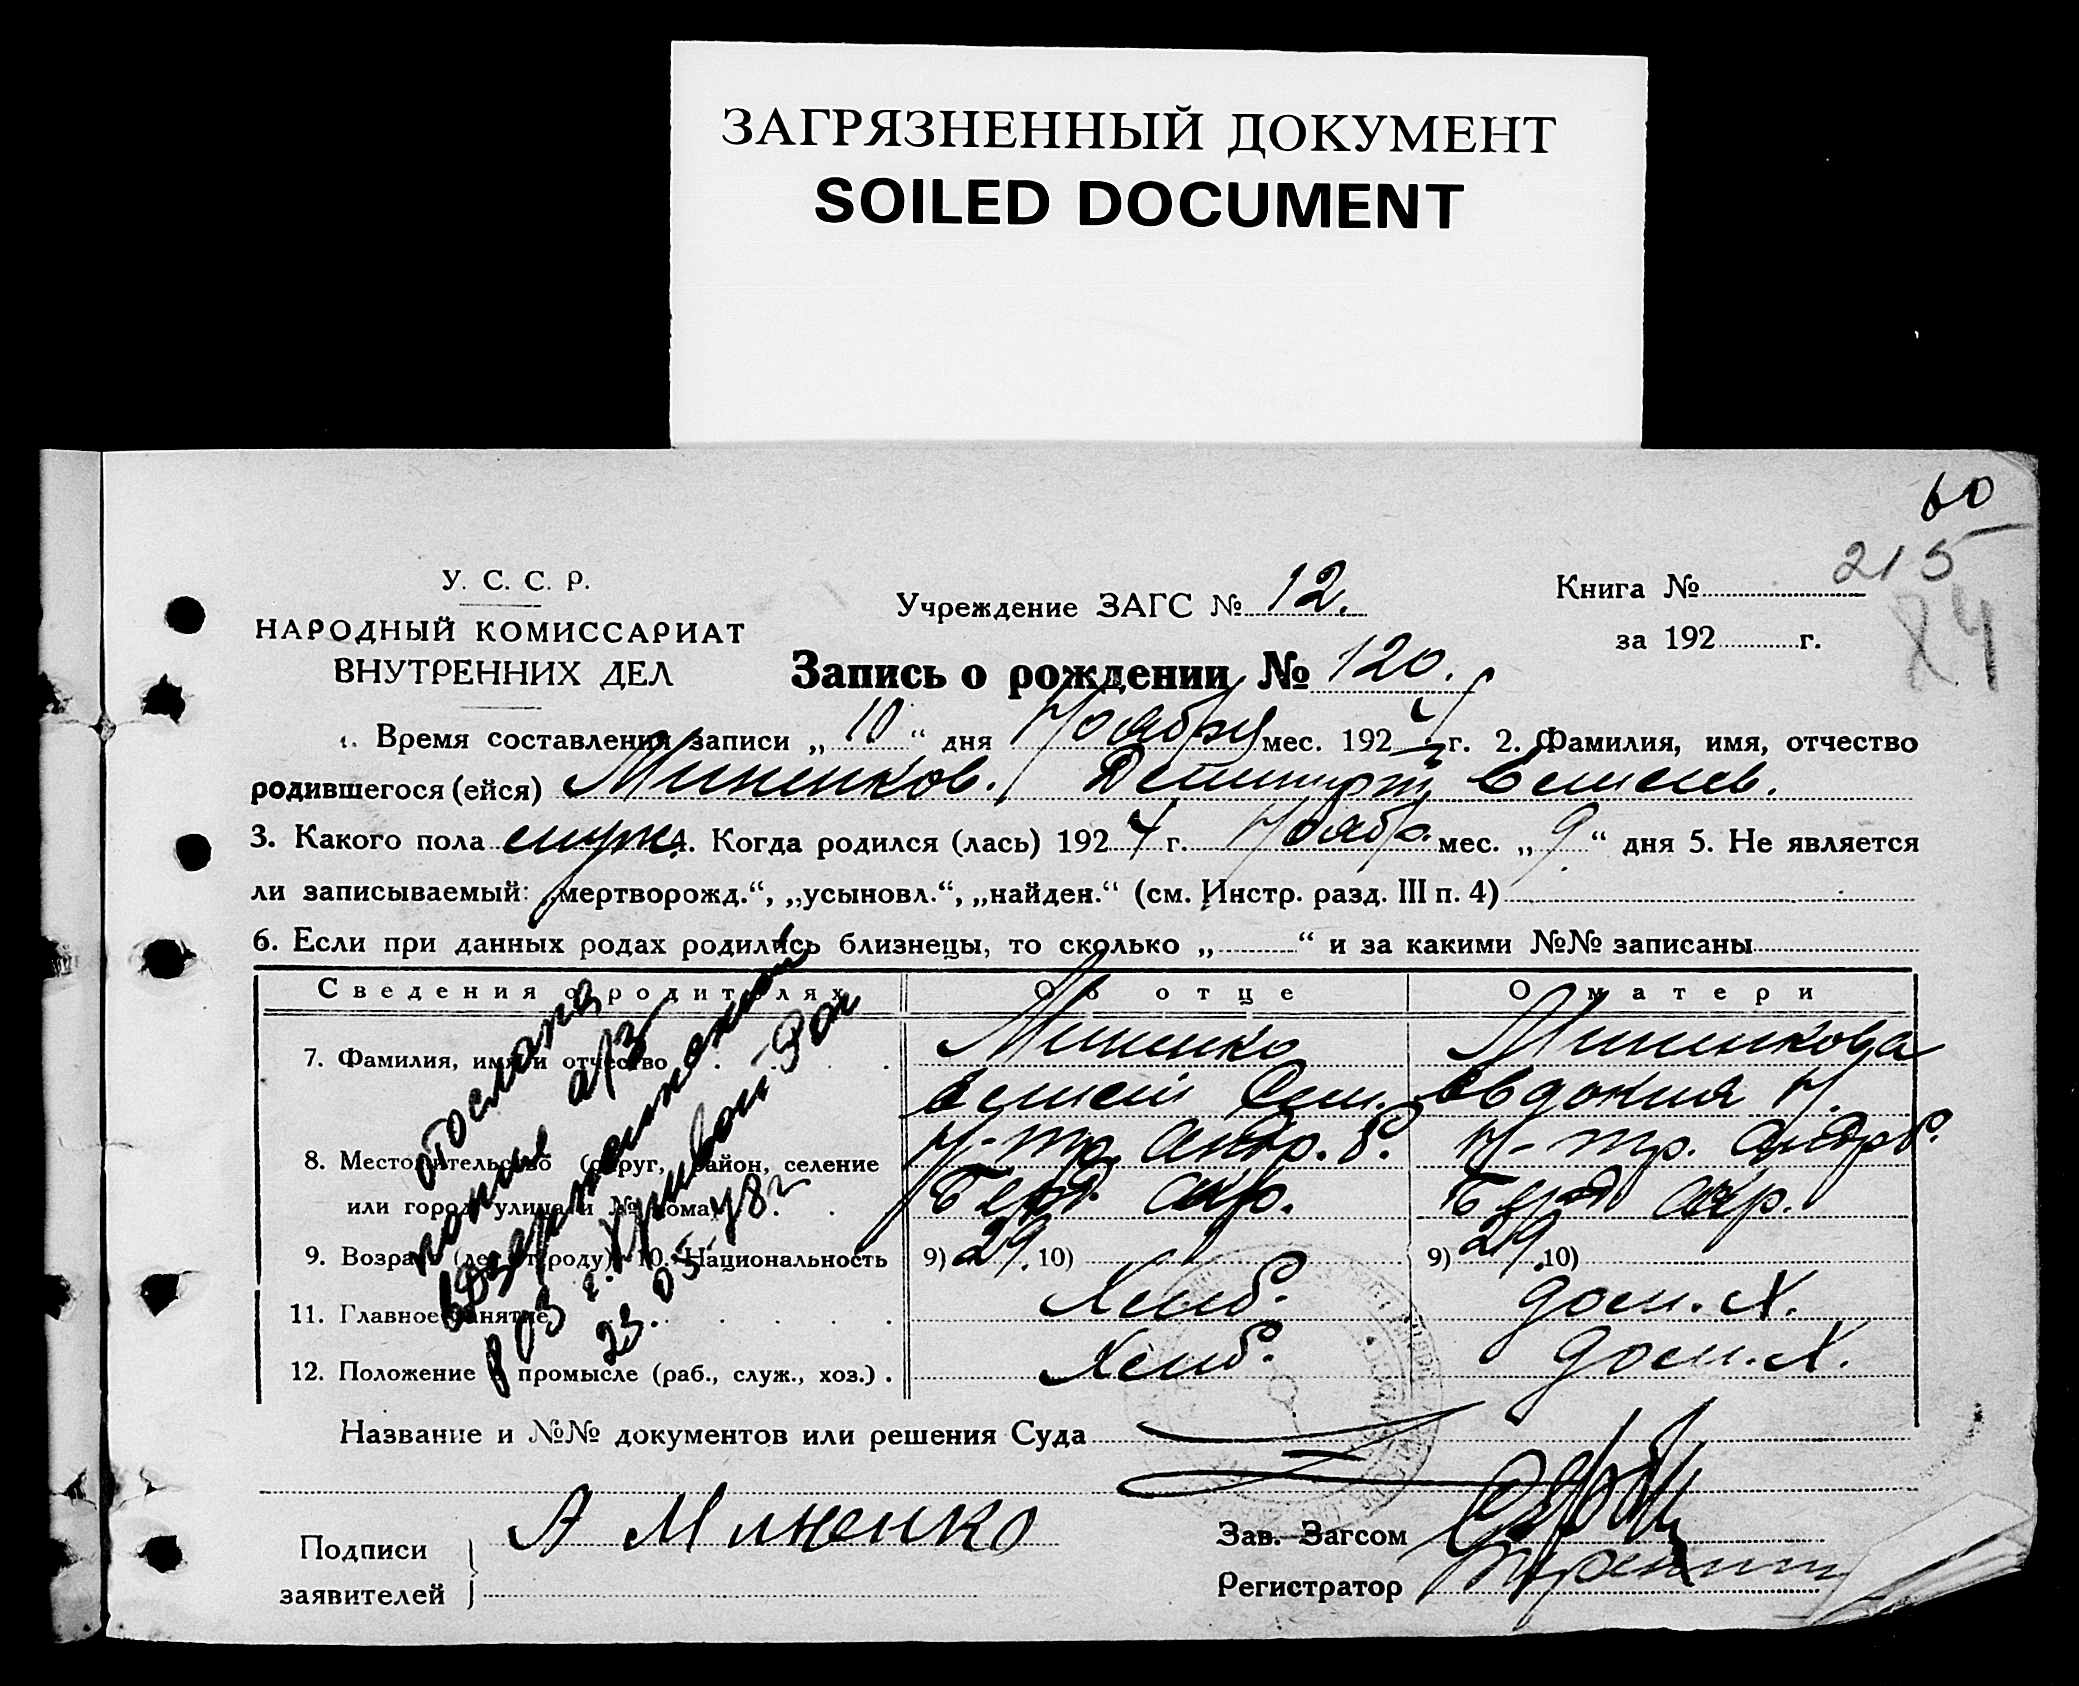 ЗАГРЯЗНЕННЫЙ ДОКУМЕНТ
SOILED DOCUMENT
60
215
84
У. С. С. Р.
НАРОДНЫЙ КОМИССАРИАТ
ВНУТРЕННИХ ДЕЛ
Учреждение ЗАГС № 12.
Книга №
за 192 г.
Запись о рождении № 120.
1. Время составления записи „ 10 “ дня Ноября мес. 192 г. 2. Фамилия, имя, отчество
родившегося (ейся) Миненков. Демитрий
3. Какого пола муж. 4. Когда родился (лась) 192 4 г. Ноябр. мес. „ 9 “ дня 5. Не является
ли записываемый: „мертворожд.“, „усыновл.“, „найден.“ (см. Инстр. разд. III п. 4)
6. Если при данных родах родились близнецы, то сколько „ “ и за какими №№ записаны
Сведения о родителях Об отце О матери
7. Фамилия, имя и отчество Миненко Миненкова
Сем. Евдокия Н.
8. Местожительство (округ, район, селение Н-тр. Андр. Н-тр. Андр.
или город, улица и № дома) Берд. окр. Берд. окр.
9. Возраст (лет, п/году) 10. Национальность 9) 29. 10) 9) 29. 10)
11. Главное занятие Хлеб. дом. х.
12. Положение в промысле (раб., служ., хоз.) Хлеб. дом. х.
отослана
копия а/з
в Дзержинский
РОЗ г. Кривой-Рог
23.05.48 г
Название и №№ документов или решения Суда
Подписи заявителей А Миненко
Зав. Загсом
Регистратор